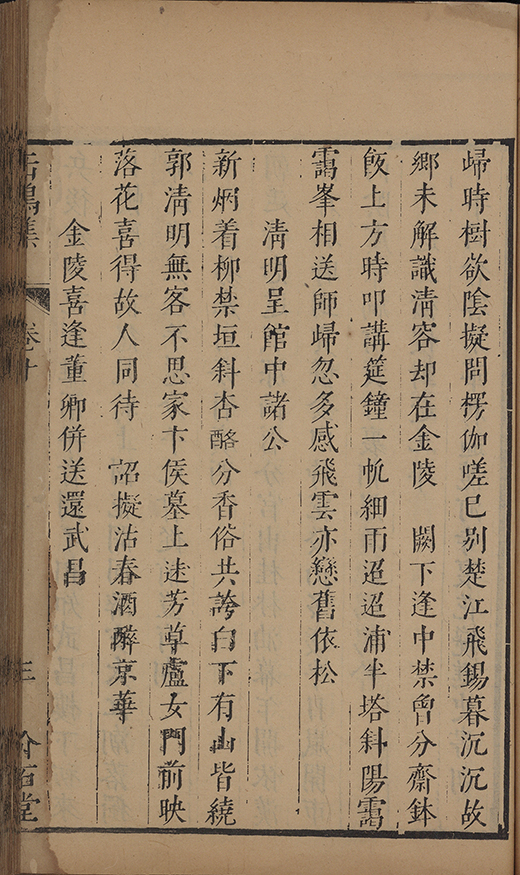 歸時樹欲陰擬問楞伽嗟已別楚江飛錫暮沉沉故
鄉未解識淸容却在金陵　闕下逢中禁曾分齋鉢
飯上方時叩講筵鐘一帆細雨迢迢浦半塔斜陽靄
靄峯相送師歸忽多感飛雲亦戀舊依松
淸明呈館中諸公
新烟着柳禁垣斜杏酪分香俗共誇白下有山皆繞
郭淸明無客不思家卞侯墓上迷芳草盧女門前映
落花喜得故人同待　詔擬沽春酒醉京華
金陵喜逢董卿併送還武昌
缶鳴集　卷十　三